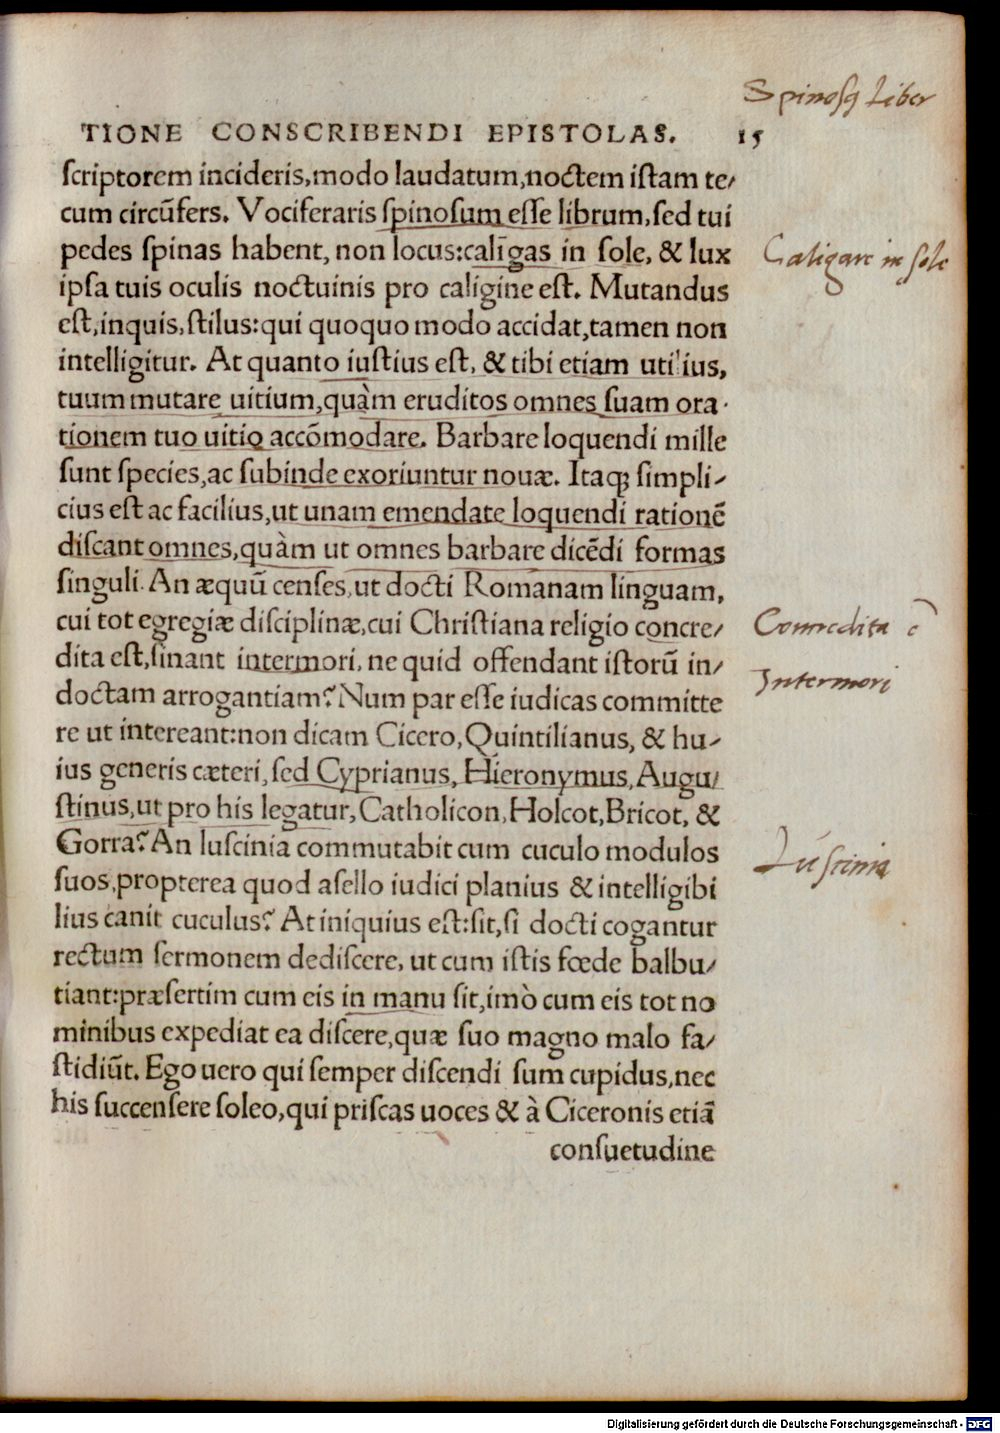 Spinosq Liber
TIONE CONSCRIBENDI EPISTOLAS. 15
ſcriptorem incideris,modo laudatum,noctem iſtam te/
cum circūfers. Vociferaris ſpinoſum eſſe librum,ſed tui
pedes ſpinas habent, non locus:caligas in ſole, & lux
Caligare in ſole
ipſa tuis oculis noctuinis pro caligine eſt. Mutandus
eſt,inquis,ſtilus:qui quoquo modo accidat,tamen non
intelligitur. At quanto iuſtius eſt, & tibi etiam utilius,
tuum mutare uitium,quàm eruditos omnes ſuam ora-
tionem tuo uitio accōmodare. Barbare loquendi mille
ſunt ſpecies,ac ſubinde exoriuntur nouæ. Itaqꝫ ſimpli/
cius eſt ac facilius,ut unam emendate loquendi rationē
diſcant omnes,quàm ut omnes barbare dicēdi formas
ſinguli. An æquū cenſes,ut docti Romanam linguam,
cui tot egregiæ diſciplinæ,cui Chriſtiana religio concre/
Concredita ē
dita eſt,ſinant intermori, ne quid offendant iſtorū in/
Intermori
doctam arrogantiam? Num par eſſe iudicas committe
re ut intereant:non dicam Cicero,Quintilianus, & hu/
ius generis cæteri,ſed Cyprianus, Hieronymus,Augu/
ſtinus,ut pro his legatur,Catholicon,Holcot,Bricot, &
Gorra? An luſcinia commutabit cum cuculo modulos
Luſcinia
ſuos,propterea quod aſello iudici planius & intelligibi
lius canit cuculus? At iniquius eſt:ſit,ſi docti cogantur
rectum ſermonem dediſcere, ut cum iſtis fœde balbu/
tiant:præſertim cum eis in manu ſit,imò cum eis tot no
minibus expediat ea diſcere,quæ ſuo magno malo fa/
ſtidiūt. Ego uero qui ſemper diſcendi ſum cupidus,nec
his ſuccenſere ſoleo,qui priſcas uoces & à Ciceronis etiā
conſuetudine
Digitalisierung gefördert durch die Deutsche Forschungsgemeinschaft - DFG